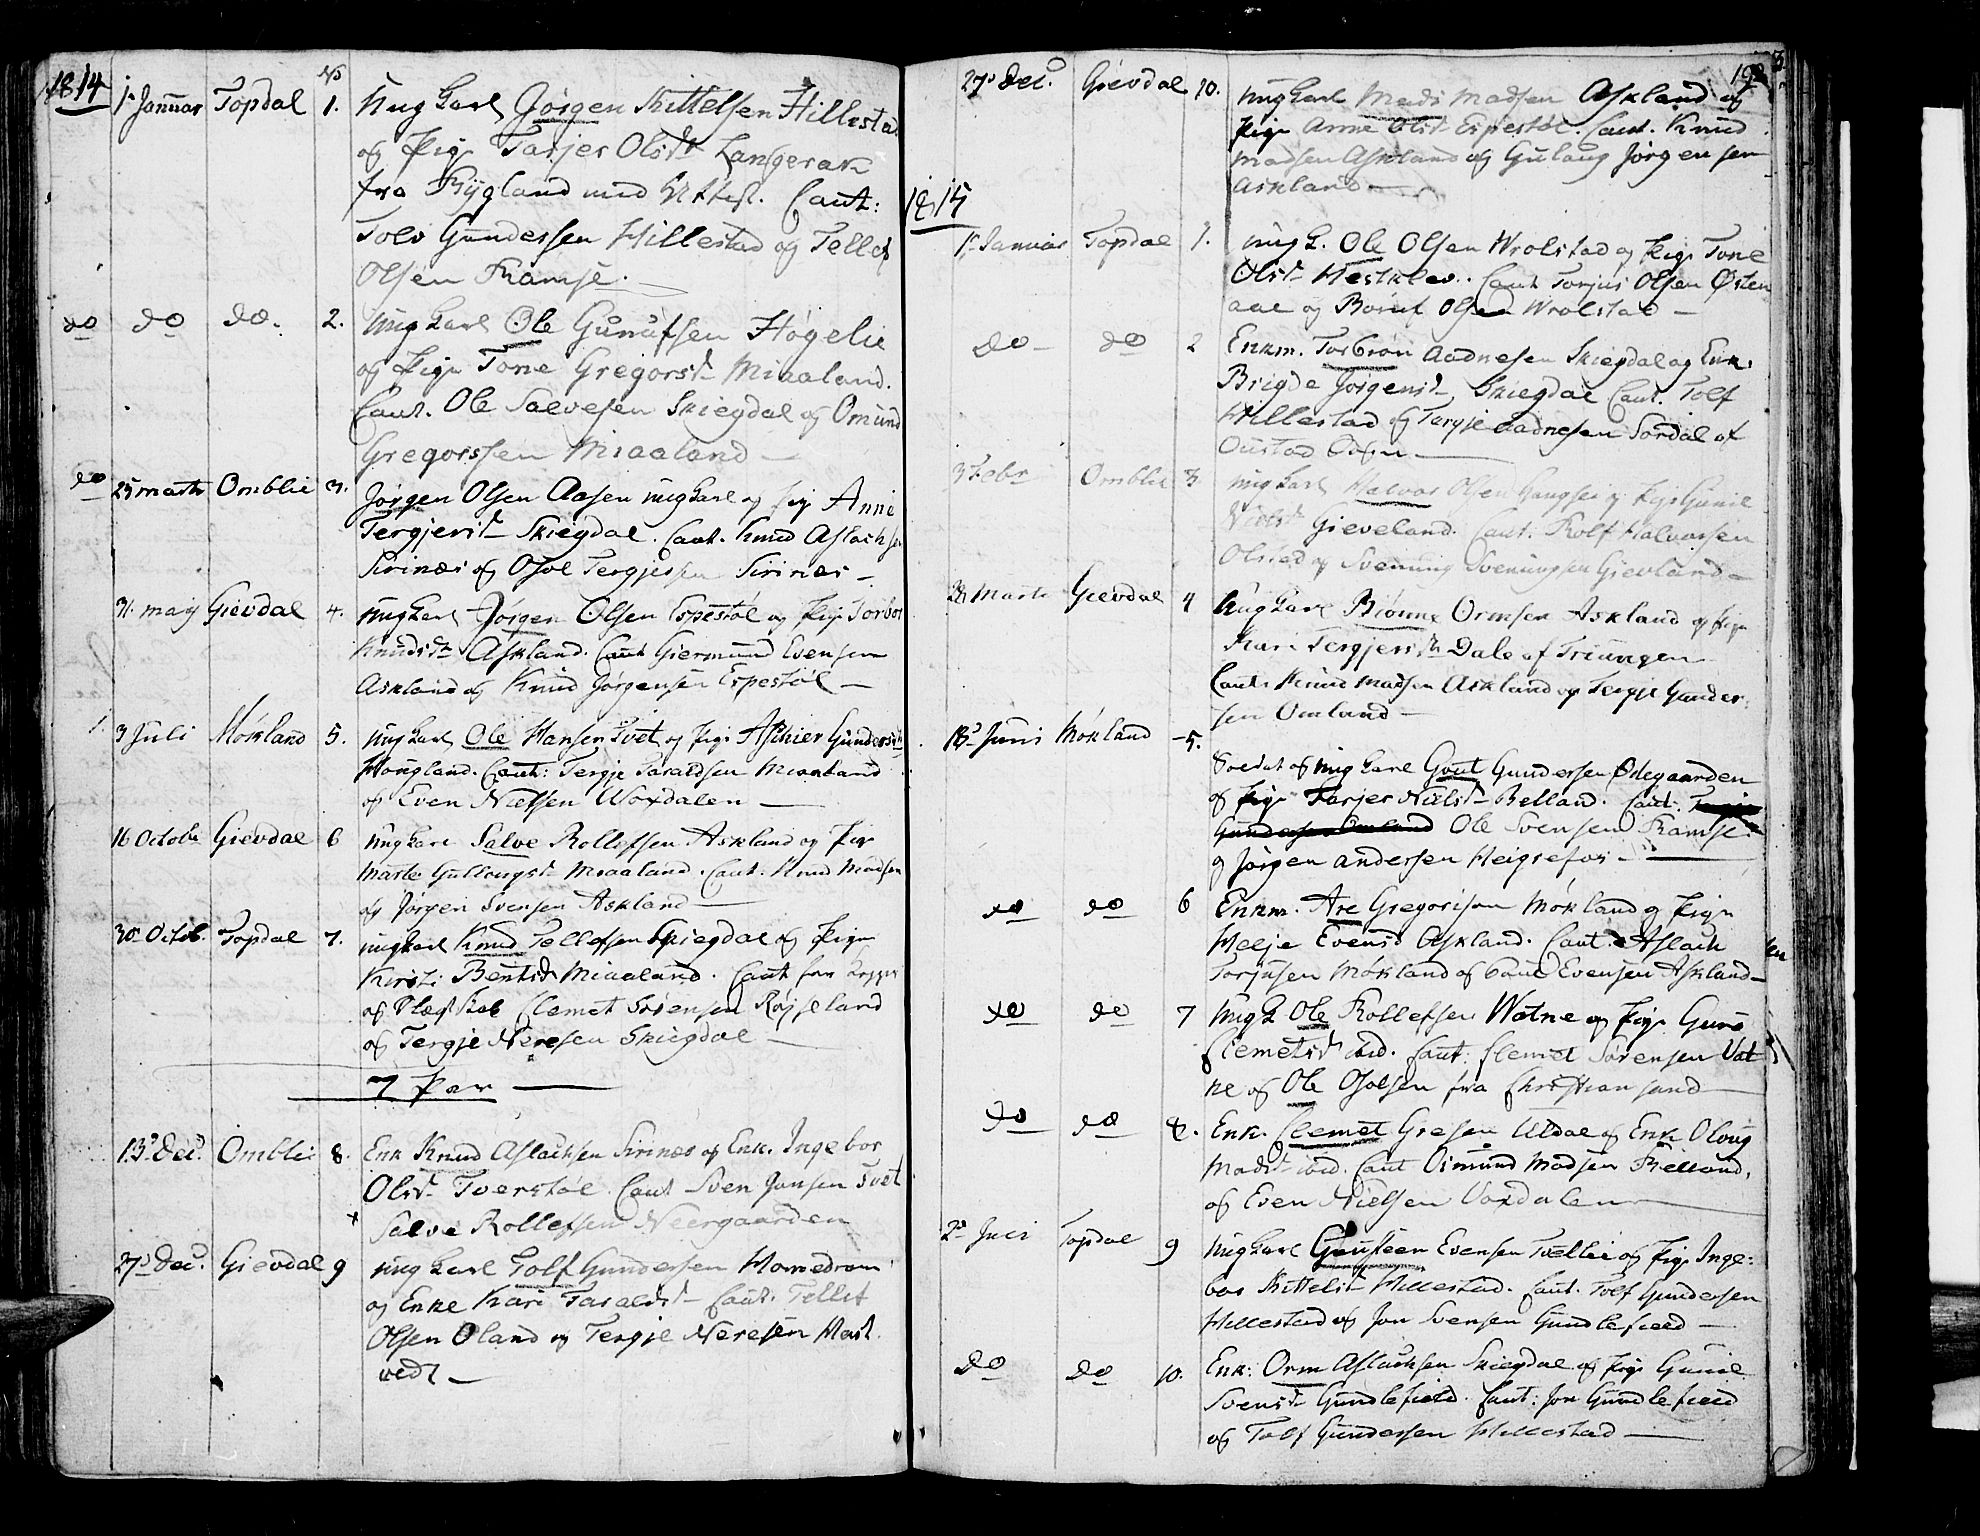 1814
No
1. Januar Topdal 1. ungkarl Jörgen Kittelsen Hillestad
og Pige Tarjer Olsdt Langerak
fra Bÿgland med Attest. Caut:
Tolv Gundersen Hillestad og Tellef
Olsen Ramse.
do do do. 2. ungkarl Ole Gunufsen Høgelie
og Pige Tone Gregorsdt Miaaland.
Caut. Ole Salvesen Skiegdal og Omund
Gregorssen Miaaland
do 25 marts Omblie 3. Jørgen Olsen Aasen ungkarl og Pig Anne
Tergjersdt Skiegdal. Caut. Knud Aslachsen
Sirinæs og Osol Tergjessen Sirinæs
31. maj Gievdal 4. ungkarl Jörgen Olsen Espestøl og Pige Torbor
Knudsdt Askland. Caut Giermund Evensen
Askland og Knud Jørgensen Espestøl
3 Juli Møkland 5. ungkarl Ole Hansen Tvet og Pige Aschier Gundersdt
Hougland. Caut: Tergje Taraldsen Miaaland
og Even Nielsen Uoxdalen
16 Octobr Gievdal 6 ungkarl Salve Rollefsen Askland og Pige
Marte Gullougsdt Miaaland. Caut: Knud Madsen
og Jørgen Svensen Askland
30 Octob. Topdal 7. ungkarl Knud Tellefsen Skiegdal og Pige
Kirsti Bentsdt Miaaland. Caut for
og Clemet Sørensen Røjseland
og Tergje Neresen Skiegdal
7 Par
13. Dec. Omblie 8. Enk Knud Aslachsen Sirinæs og Enk. Ingebor
Olsdt Tverstøl. Caut Sven Jonsen Tvet
Salve Rollefsen Neergaarden
27. Dec. Gievdal 9 ungkarl Tolf Gundersen Homedrom
og Enke Kari Taraldsdt Caut. Tellef
Olsen Oland og Tergje Neresen Hart
vedt
192
27. Dec. Gievdal 10. ungkarl Mads Madsen Askland og
Pige Anne Olsdt Espestøl. Caut. Knud
Madsen Askland og Gulaug Jørgensen
Askland
1815
1. Januar Topdal 1. ungk. Ole Olsen Wrolstad og Pige Tone
Olsdt Hestklev. Caut Torjus Olsen Østen
aae og Olsen Wrolstad
do do 2 Enkm. Torbrøn Aadnesen Skiegdal og Enk.
Brigde Jørgensdt Skiegdal Caut. Tolf
Hillestad og Targje Aadnesen Sordal af
Oustad Sogn
3 Febr Omblie 3. ungkarl Halvor Olsen Haugsei og Pige Gunil
Nielsdt Gieveland. Caut. Rolf Halvorsen
Olstad og Svenung Svenungsen Gievland
28 Marts Gievdal 4 ungkarl Biønne Ormsen Askland og Pige
Kari Tergjersdt Dale af Triungen
Caut. Knud Madsen Askland og Tergje Gunder-
sen Omland
18. Juni Møkland 5. Soldat og ungkarl Gout Gundersen Ødegaarden
og Pige Tarjer Nielsdt Belland. Caut. Tergje
Gundersen Omland Ole Svensen Ramse.
og Jørgen Andersen Heigrefos
do do 6 Enkm. Are Gregorisen Møkland og Pige
Helje Evensd Askland. Caut. Aslach
Torjusen Møkland og Evensen Askland
do do 7 ungk Ole Rollefsen Watne og Pige Guro
Clemetsdt ibid. Caut: Clemet Sørensen Vat
ne og Ole Osolsen fra Christiansand
do do 8. Enk. Clemet Gresen Uldal og Enk Oloug
Madsdt ibid. Caut Osmund Madsen Rielland,
og Even Nielsen Voxdalen
2. Juli Topdal 9 ungkarl Gousteen Evensen Tvellie og Pige Inge:
bor Kittelsdt Hillestad. Caut. Tolf Gundersen
Hillestad og Jon Svensen Gundlefield
do do 10. Enk: Orm Aslachsen Skiegdal og Pige Gunil
Svensdt Gundlefield. Caut: Jon Gundlefield
og Tolf Gundersen Hillestad